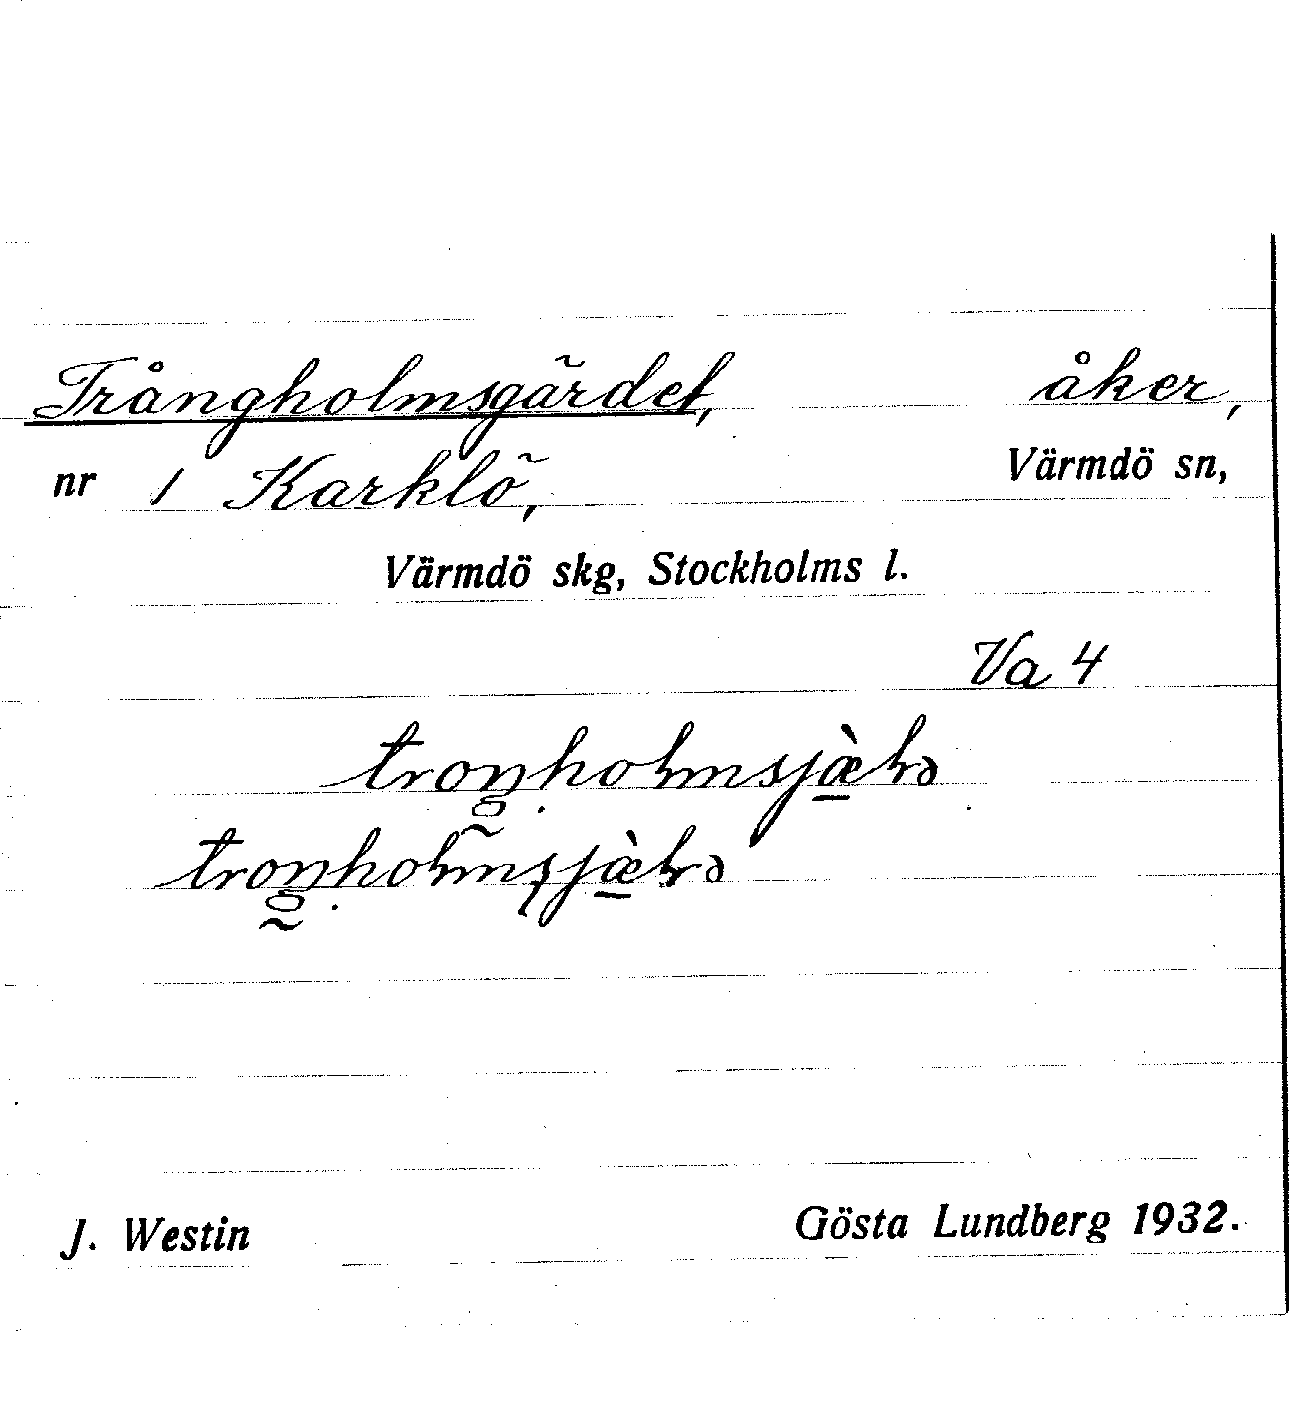 Trångholmsgärdet, åker,
nr 1 Karklö, Värmdö sn,
Värmdö skg, Stockholms l.
Va 4
J. Westin Gösta Lundberg 1932.